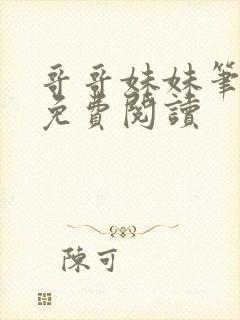 哥哥妹妹筆
免費閱讀
陳可